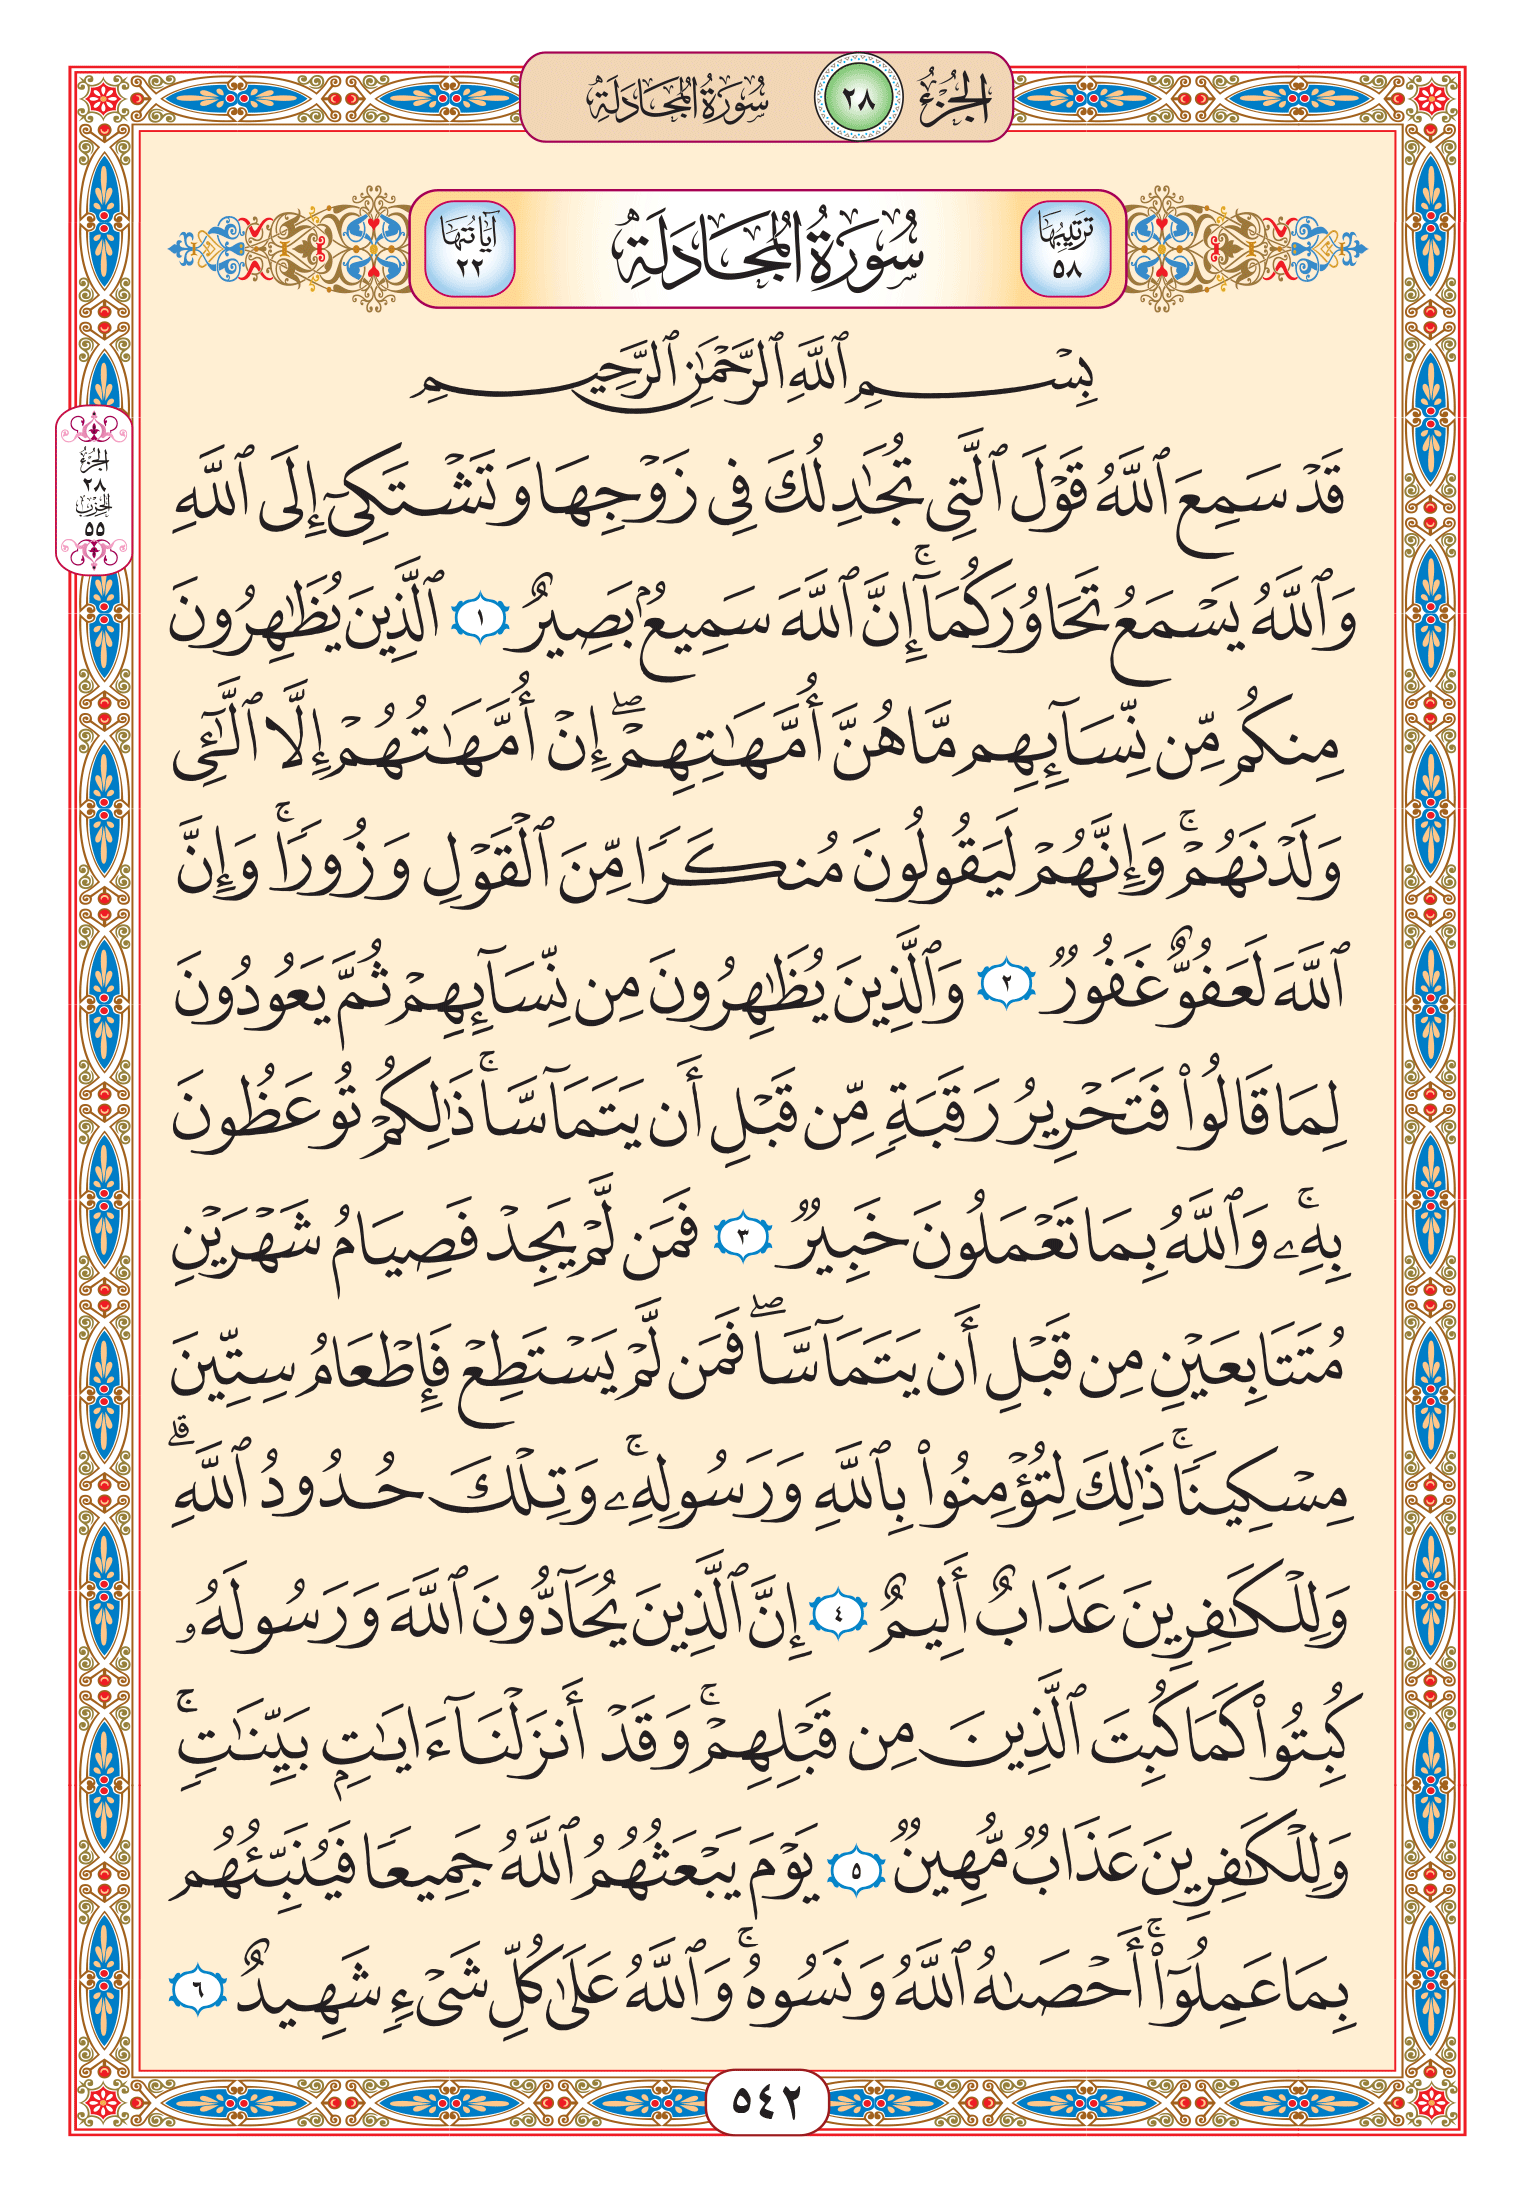 الجزء ٢٨ سورة المجادلة
ترتيبها ٥٨ سورة المجادلة آياتها ٢٢
بِسْمِ ٱللَّهِ ٱلرَّحْمَٰنِ ٱلرَّحِيمِ
قَدْ سَمِعَ ٱللَّهُ قَوْلَ ٱلَّتِى تُجَٰدِلُكَ فِى زَوْجِهَا وَتَشْتَكِىٓ إِلَى ٱللَّهِ
الجزء
٢٨
الحزب
٥٥
وَٱللَّهُ يَسْمَعُ تَحَاوُرَكُمَآ ۚ إِنَّ ٱللَّهَ سَمِيعٌۢ بَصِيرٌ ١ ٱلَّذِينَ يُظَٰهِرُونَ
مِنكُم مِّن نِّسَآئِهِم مَّا هُنَّ أُمَّهَٰتِهِمْ ۖ إِنْ أُمَّهَٰتُهُمْ إِلَّا ٱلَّٰٓئِى
وَلَدْنَهُمْ ۚ وَإِنَّهُمْ لَيَقُولُونَ مُنكَرًا مِّنَ ٱلْقَوْلِ وَزُورًا ۚ وَإِنَّ
ٱللَّهَ لَعَفُوٌّ غَفُورٌ ٢ وَٱلَّذِينَ يُظَٰهِرُونَ مِن نِّسَآئِهِمْ ثُمَّ يَعُودُونَ
لِمَا قَالُوا۟ فَتَحْرِيرُ رَقَبَةٍ مِّن قَبْلِ أَن يَتَمَآسَّا ۚ ذَٰلِكُمْ تُوعَظُونَ
بِهِۦ ۚ وَٱللَّهُ بِمَا تَعْمَلُونَ خَبِيرٌ ٣ فَمَن لَّمْ يَجِدْ فَصِيَامُ شَهْرَيْنِ
مُتَتَابِعَيْنِ مِن قَبْلِ أَن يَتَمَآسَّا ۖ فَمَن لَّمْ يَسْتَطِعْ فَإِطْعَامُ سِتِّينَ
مِسْكِينًا ۚ ذَٰلِكَ لِتُؤْمِنُوا۟ بِٱللَّهِ وَرَسُولِهِۦ ۚ وَتِلْكَ حُدُودُ ٱللَّهِ ۗ
وَلِلْكَٰفِرِينَ عَذَابٌ أَلِيمٌ ٤ إِنَّ ٱلَّذِينَ يُحَآدُّونَ ٱللَّهَ وَرَسُولَهُۥ
كُبِتُوا۟ كَمَا كُبِتَ ٱلَّذِينَ مِن قَبْلِهِمْ ۚ وَقَدْ أَنزَلْنَآ ءَايَٰتٍۭ بَيِّنَٰتٍ ۚ
وَلِلْكَٰفِرِينَ عَذَابٌ مُّهِينٌ ٥ يَوْمَ يَبْعَثُهُمُ ٱللَّهُ جَمِيعًا فَيُنَبِّئُهُم
بِمَا عَمِلُوٓا۟ ۚ أَحْصَىٰهُ ٱللَّهُ وَنَسُوهُ ۚ وَٱللَّهُ عَلَىٰ كُلِّ شَىْءٍ شَهِيدٌ ٦
٥٤٢